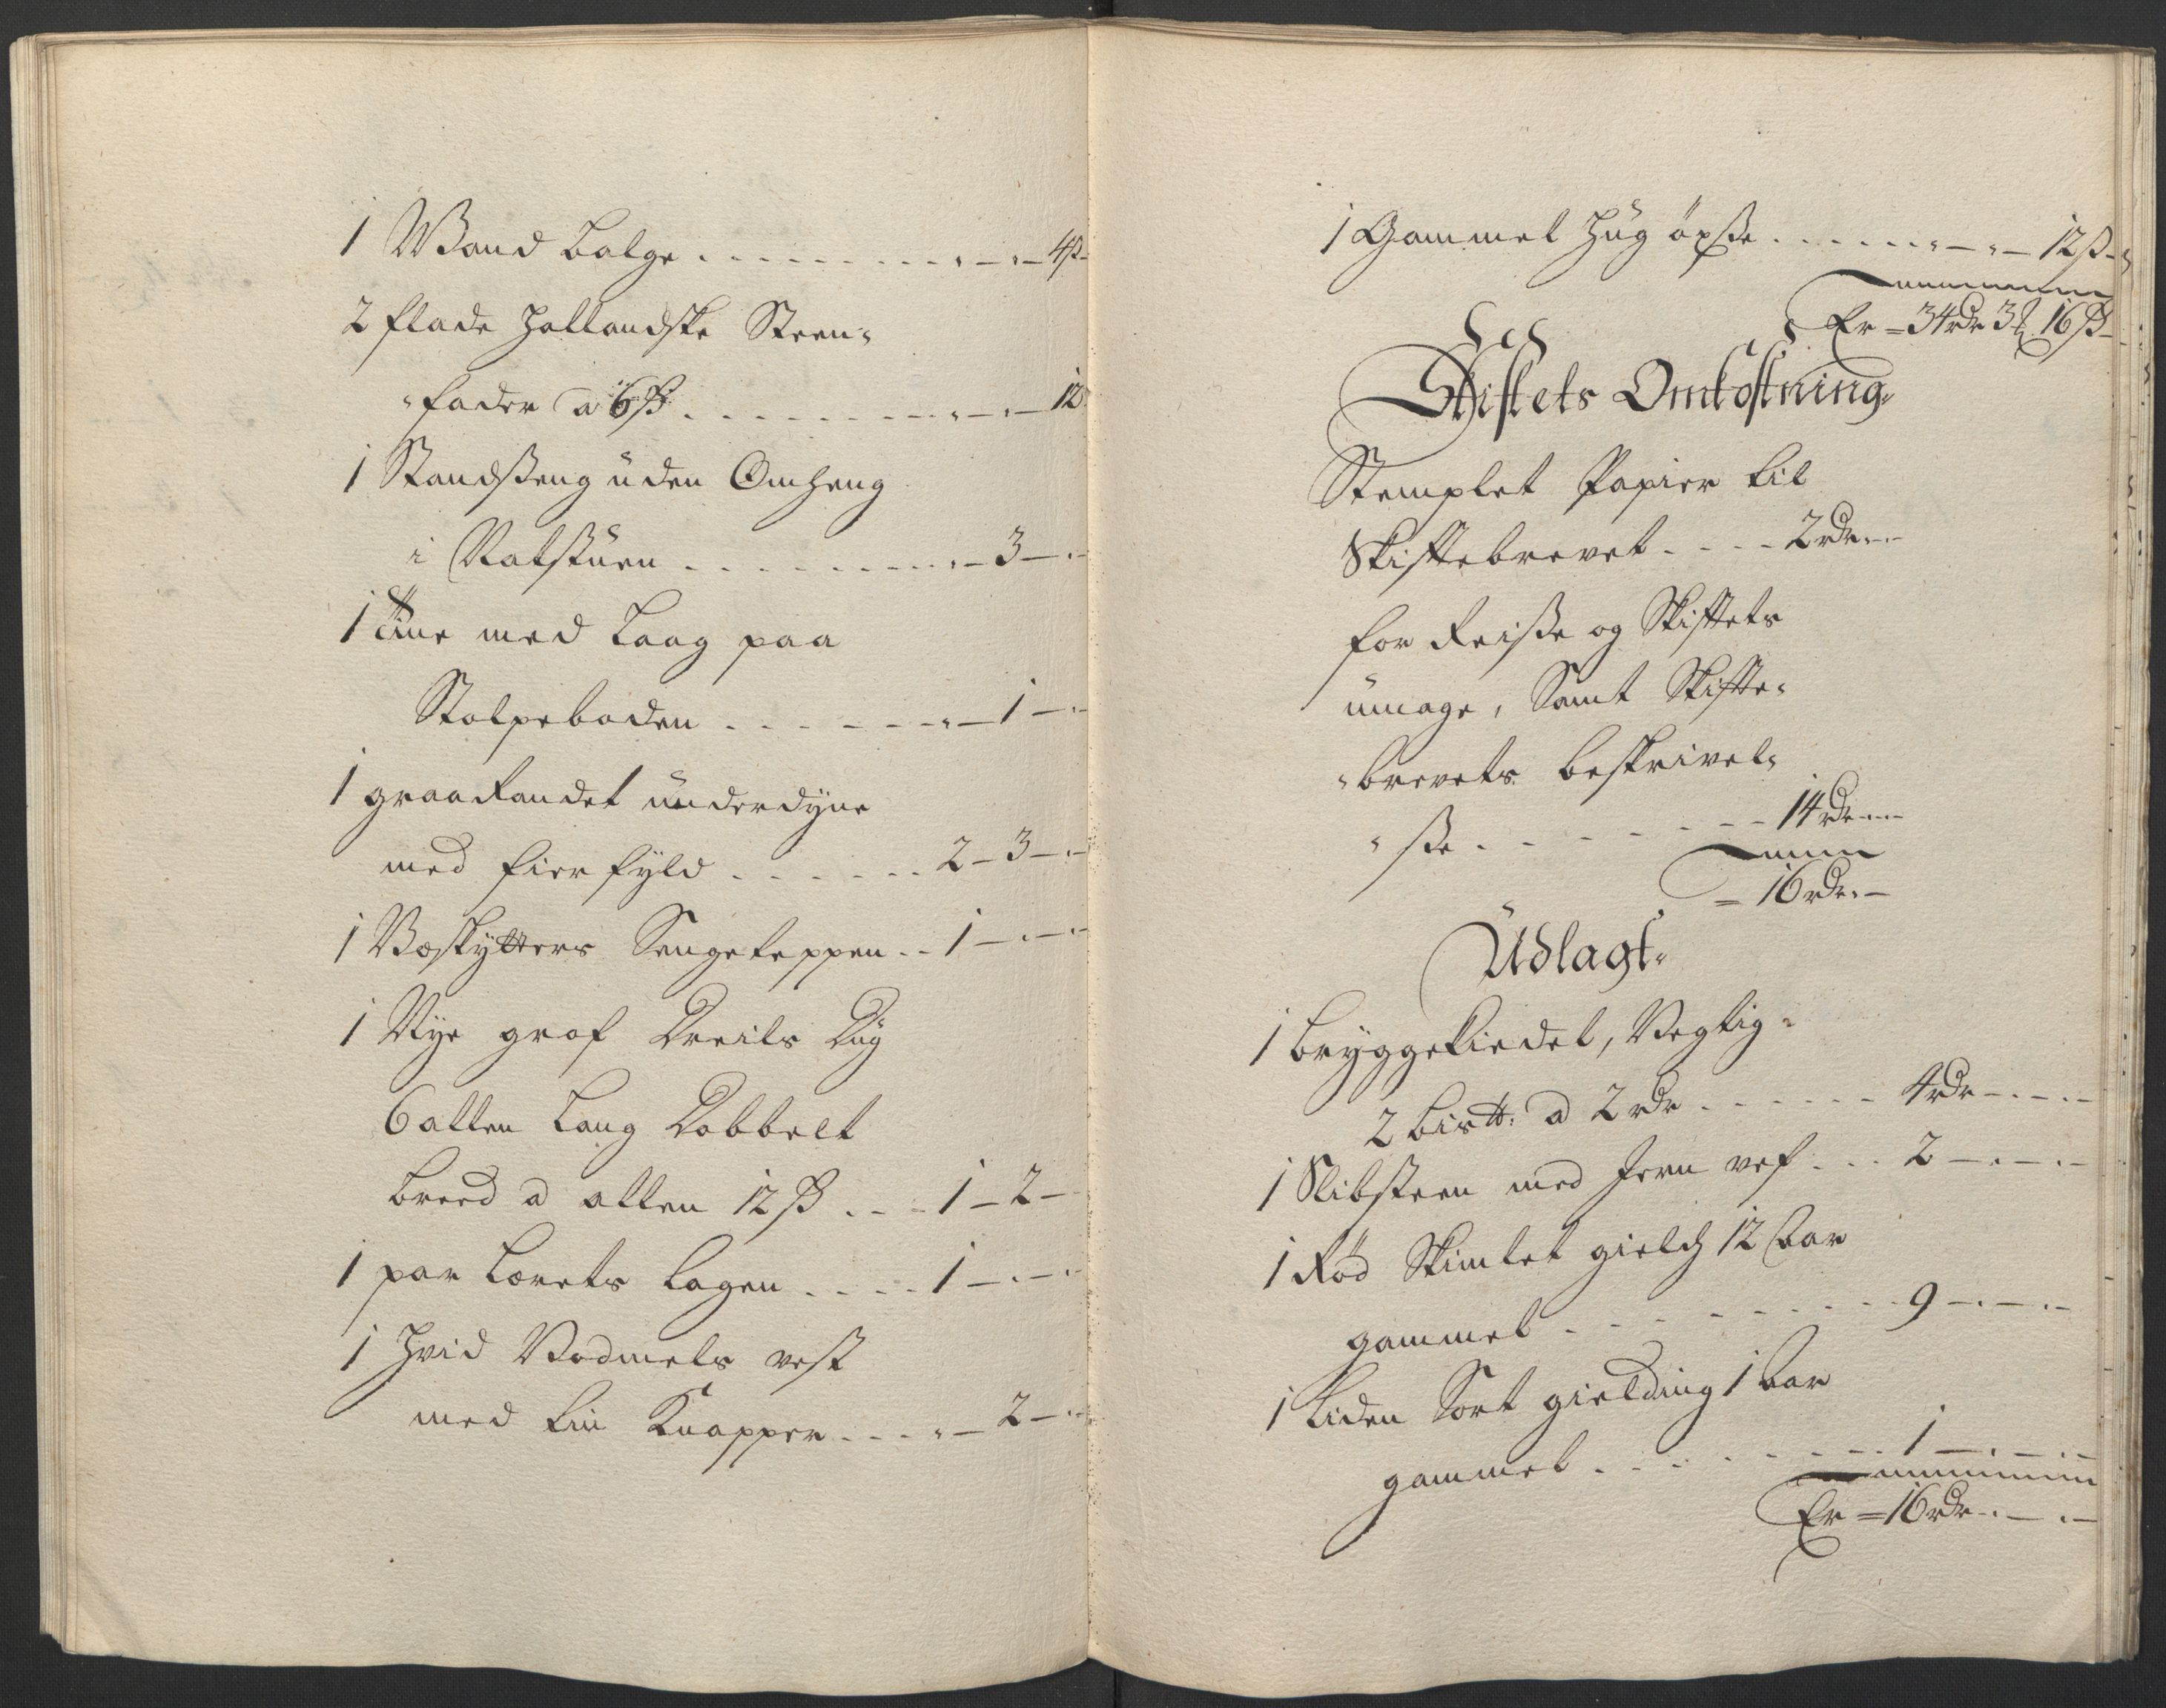 1 Wand balge . . . . . . . . . „ – „ – 4 ß
2 flade Hollandske Steen-
„fader a 6 ß . . . . . . . . . „ – „ – 12
1 Standseng uden Omheng
i Natstuen . . . . . . . . . „ – 3 – „
1 Tiine med Laag paa
Stolpeboden . . . . . . . „ – 1 – „
1 graa Randet underdyne
med fierfyld . . . . . . 2 – 3 – „
1 Væskytters Sengeteppen . . 1 – „ – „
1 Nye grof Dreils Dug
6 allen Lang Dobbelt
breed a allen 12 ß . . . 1 – 2 –
1 par Lærets lagen . . . . 1 – „ – „
1 Hvid Vadmels vest
med tin Knapper . . . „ – 2 – „
1 Gammel Hug öxse . . . . . . . „ – „ – 12 ß
Er = 34 rdr 3 16 ß
Skiftets Omkostning
Stemplet Papier til
Skiftebrevet . . . . 2 rdr „ „
for Reisse og Skiftets
umage, Samt Skifte-
„brevets beskrivel-
„sse . . . . . . . 14 rdr „ „
= 16 rdr „ –
Udlagt
1 bryggekiedel, Vegtig
2 bis℔: a 2 rdr . . . . . . 4 rdr – „ – „
1 Slibsteen med Jern vef . . . 2 – „ – „
1 Rød Skimlet gield 12 aar
gammel . . . . . . . . . 9 – „ – „
1 Liden Sort gielding 1 aar
gammel . . . . . . . . . 1 – „ – „
Er = 16 rdr „ – „ –